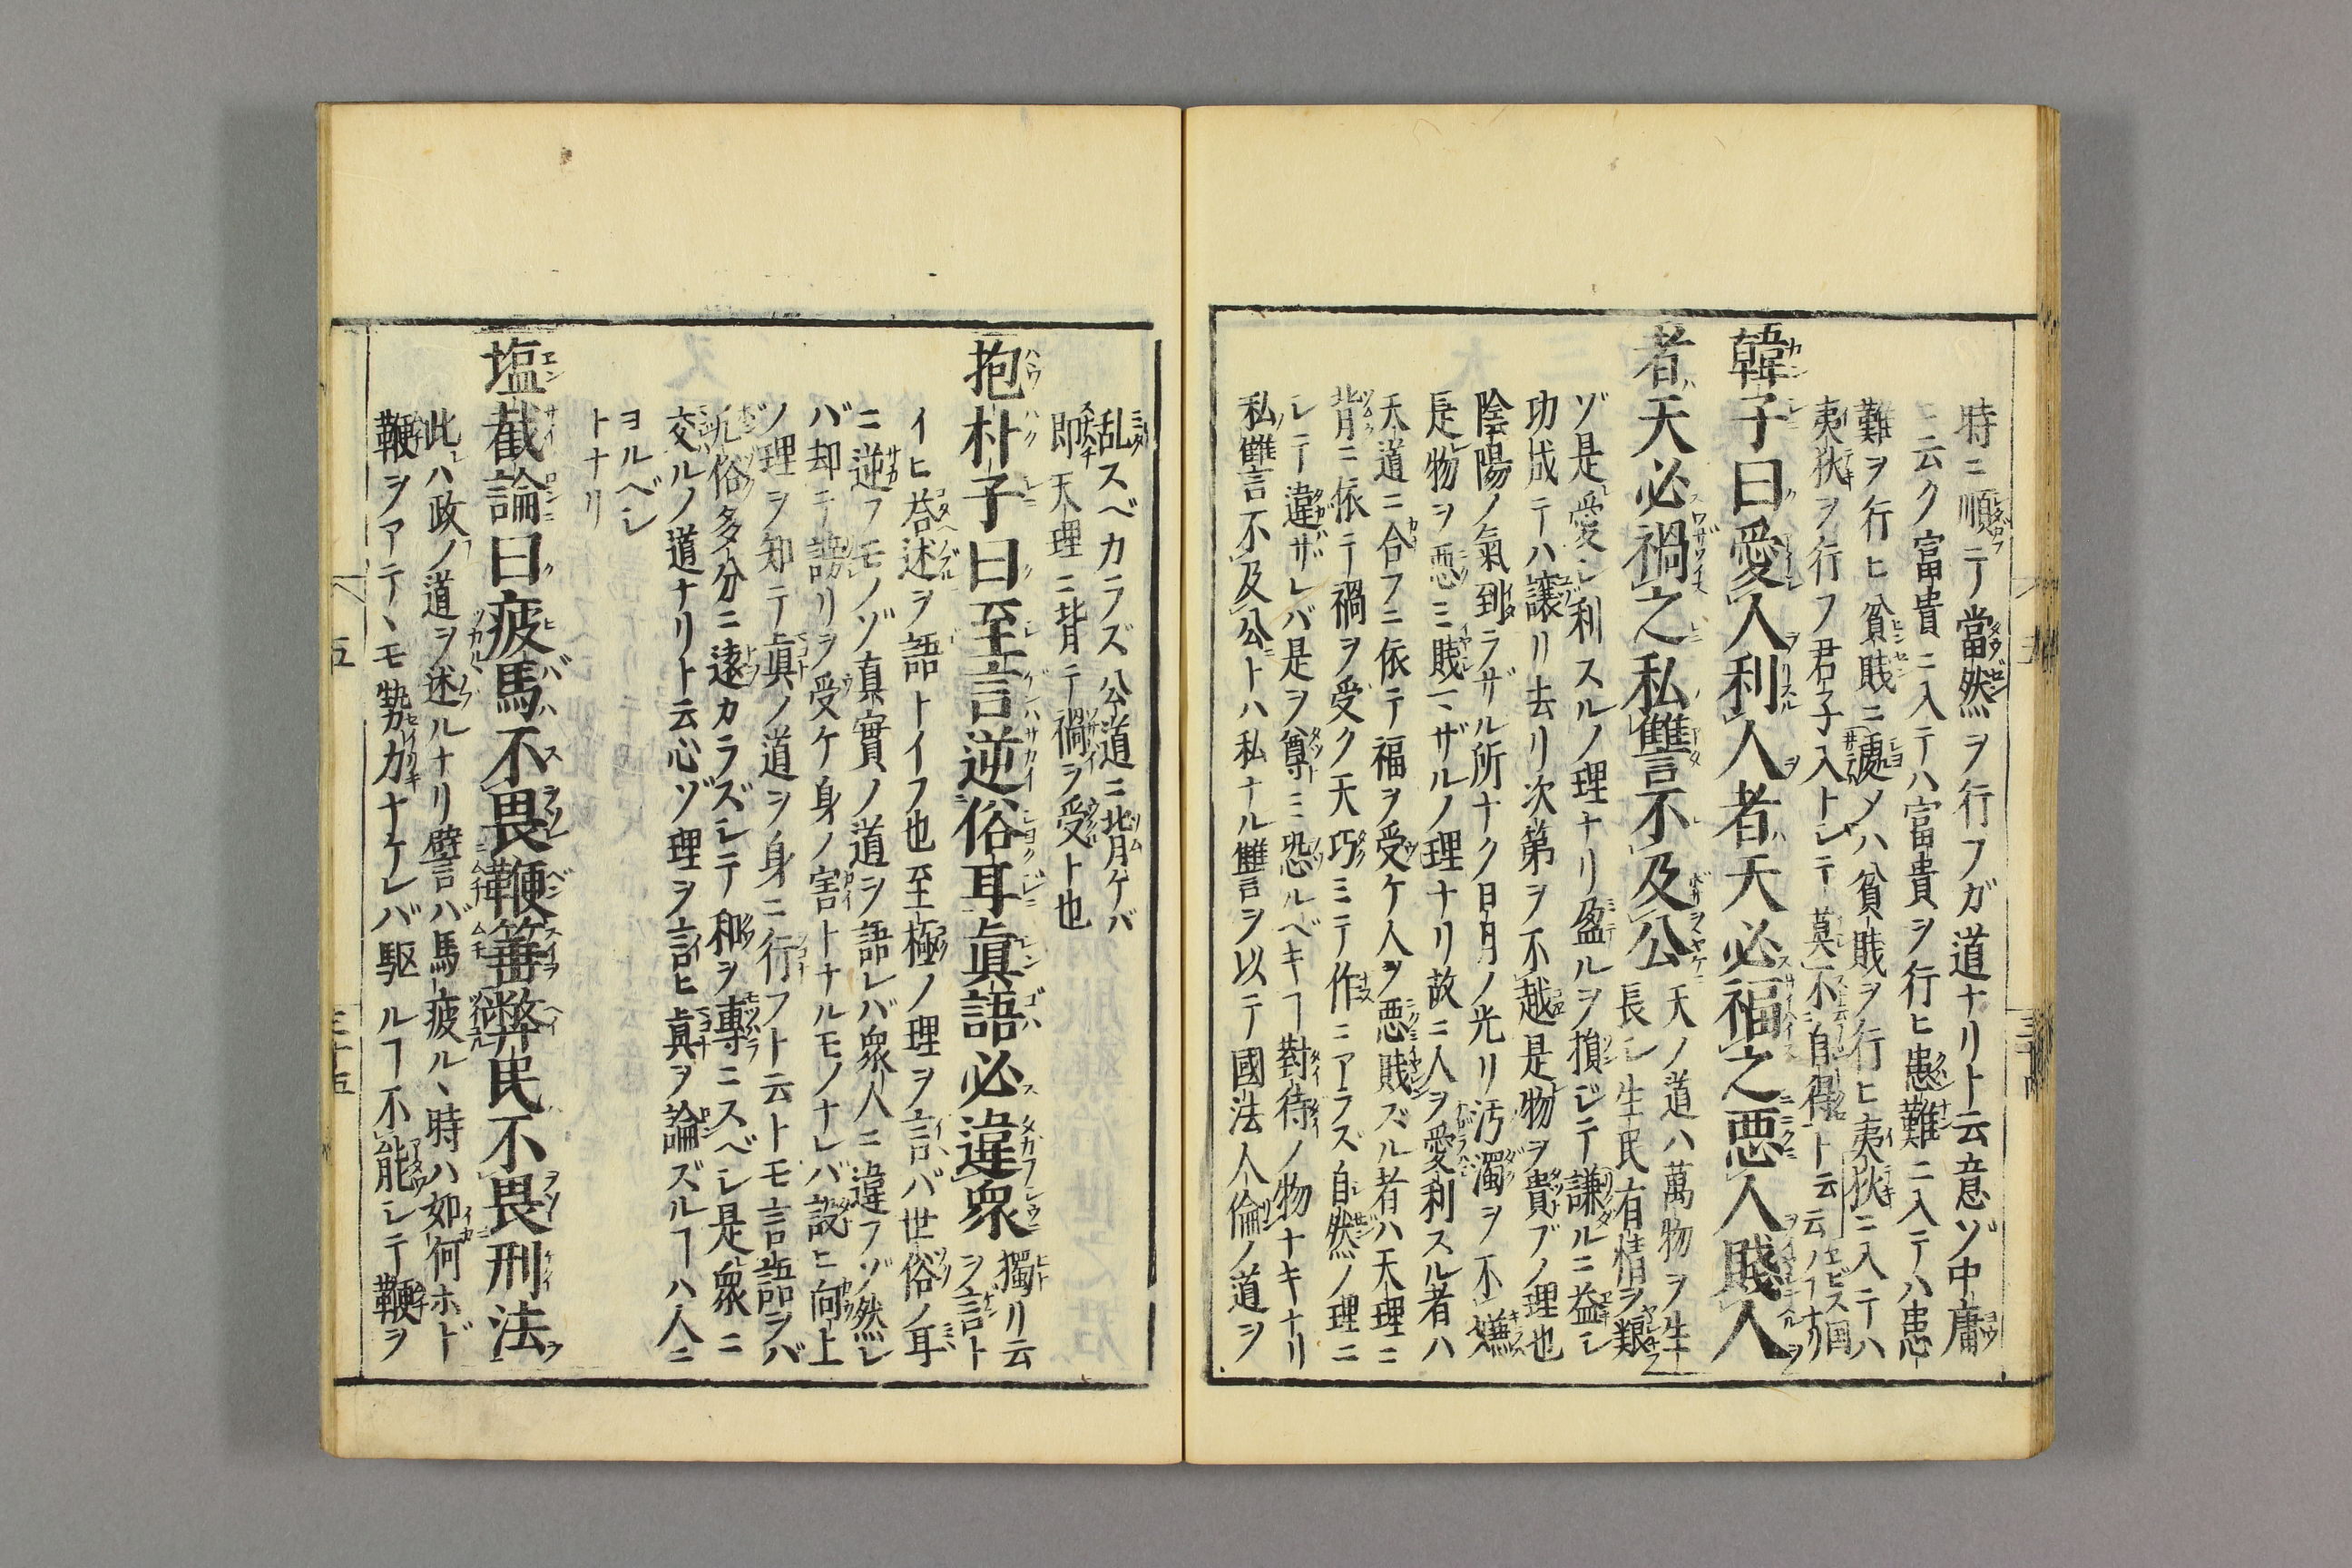 時ニ順テ當然ヲ行フガ道ナリト云意ゾ中庸
ニ云ク富貴ニ入テハ富貴ヲ行ヒ患難ニ入テハ患
難ヲ行ヒ貧賎ニ處メハ貧賎ヲ行ヒ夷狄ニ入テハ
夷狄ヲ行フ君子入トシテ莫不自得ト云云
韓子曰愛人利人者天必福之悪人賤人
者天必禍之私讐不及公
天ノ道ハ萬物ヲ生
長シ生民有情ヲ艱
ゾ是愛シ利スルノ理ナリ盈ルヲ損ジテ謙ルニ益シ
功成テハ譲リ去リ次第ヲ不越是物ヲ貴ブノ理也
陰陽ノ氣到ラザル所ナク日月ノ光リ汚濁ヲ不嫌
是物ヲ悪ミ賎マザルノ理ナリ故ニ人ヲ愛利スル者ハ
天道ニ合フニ依テ福ヲ受ケ人ヲ悪賎ズル者ハ天理ニ
背ニ依テ禍ヲ受ク天巧ミテ作ニアラズ自然ノ理ニ
シテ違ザレバ是ヲ尊ミ恐ルベキヿ對待ノ物ナキナリ
私讐不及公トハ私ナル讐ヲ以テ國法人倫ノ道ヲ
乱スベカラズ公道ニ背ケバ
即天理ニ背テ禍ヲ受ト也
抱朴子曰至言逆俗耳眞語必違衆
獨リ云
ヲ言ト
イヒ荅述ヲ語トイフ也至極ノ理ヲ言バ世俗ノ耳
ニ逆フモノゾ真實ノ道ヲ語レバ衆人ニ違フゾ然レ
バ却テ謗リヲ受ケ身ノ害トナルモノナレバ設ヒ向上
ノ理ヲ知テ眞ノ道ヲ身ニ行フト云トモ言語ヲバ
凢俗多分ニ遠カラズシテ和ヲ專ニスベシ是衆ニ
交ルノ道ナリト云心ゾ理ヲ言ヒ眞ヲ論ズルヿハ人ニ
ヨルベシ
トナリ
塩截論曰疲馬不畏鞭箠弊民不畏刑法
此ハ政ノ道ヲ述ルナリ譬バ馬疲ルヽ時ハ如何ホド
鞭ヲアテヽモ勢力ナケレバ駆ルヿ不能シテ鞭ヲ
五
三十五